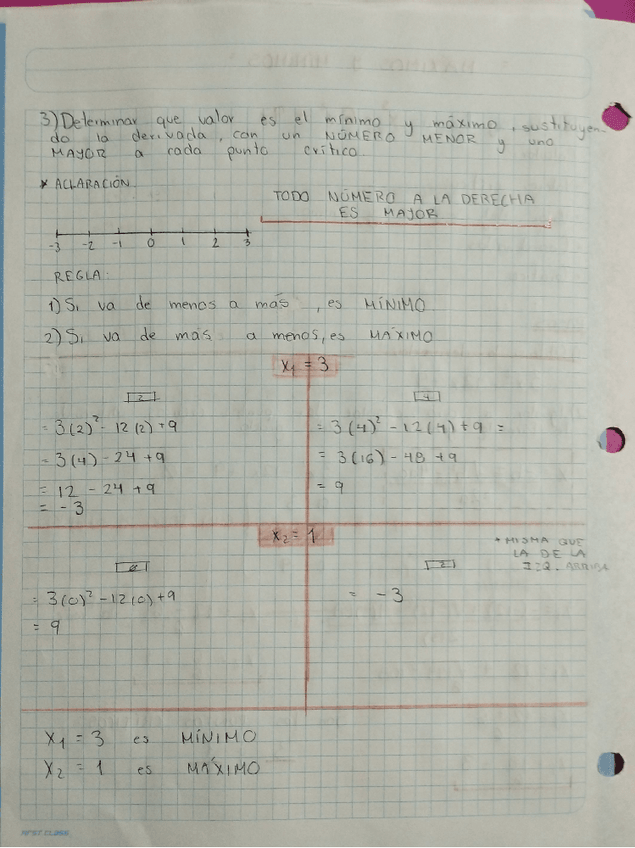 3) Determinar que valor es el mínimo y máximo, sustituyen-
do la derivada, con un NÚMERO MENOR y uno
MAYOR a cada punto crítico
* ACLARACIÓN
TODO NÚMERO A LA DERECHA
ES MAJOR
-3 -2 -1 0 1 2 3
REGLA:
1) Si va de menos a más, es MÍNIMO
2) Si va de más a menos, es MÁXIMO
X₁ = 3
2
= 3(2)² - 12(2) + 9
= 3(4) - 24 + 9
= 12 - 24 + 9
= -3
4
= 3(4)² - 12(4) + 9 =
= 3(16) - 48 + 9
= 9
X₂ = 1
= 3(0)² - 12(0) + 9
= 9
2
= -3
* MISMA QUE
LA DE LA
IZQ. ARRIBA
X₁ = 3 es MÍNIMO
X₂ = 1 es MÁXIMO